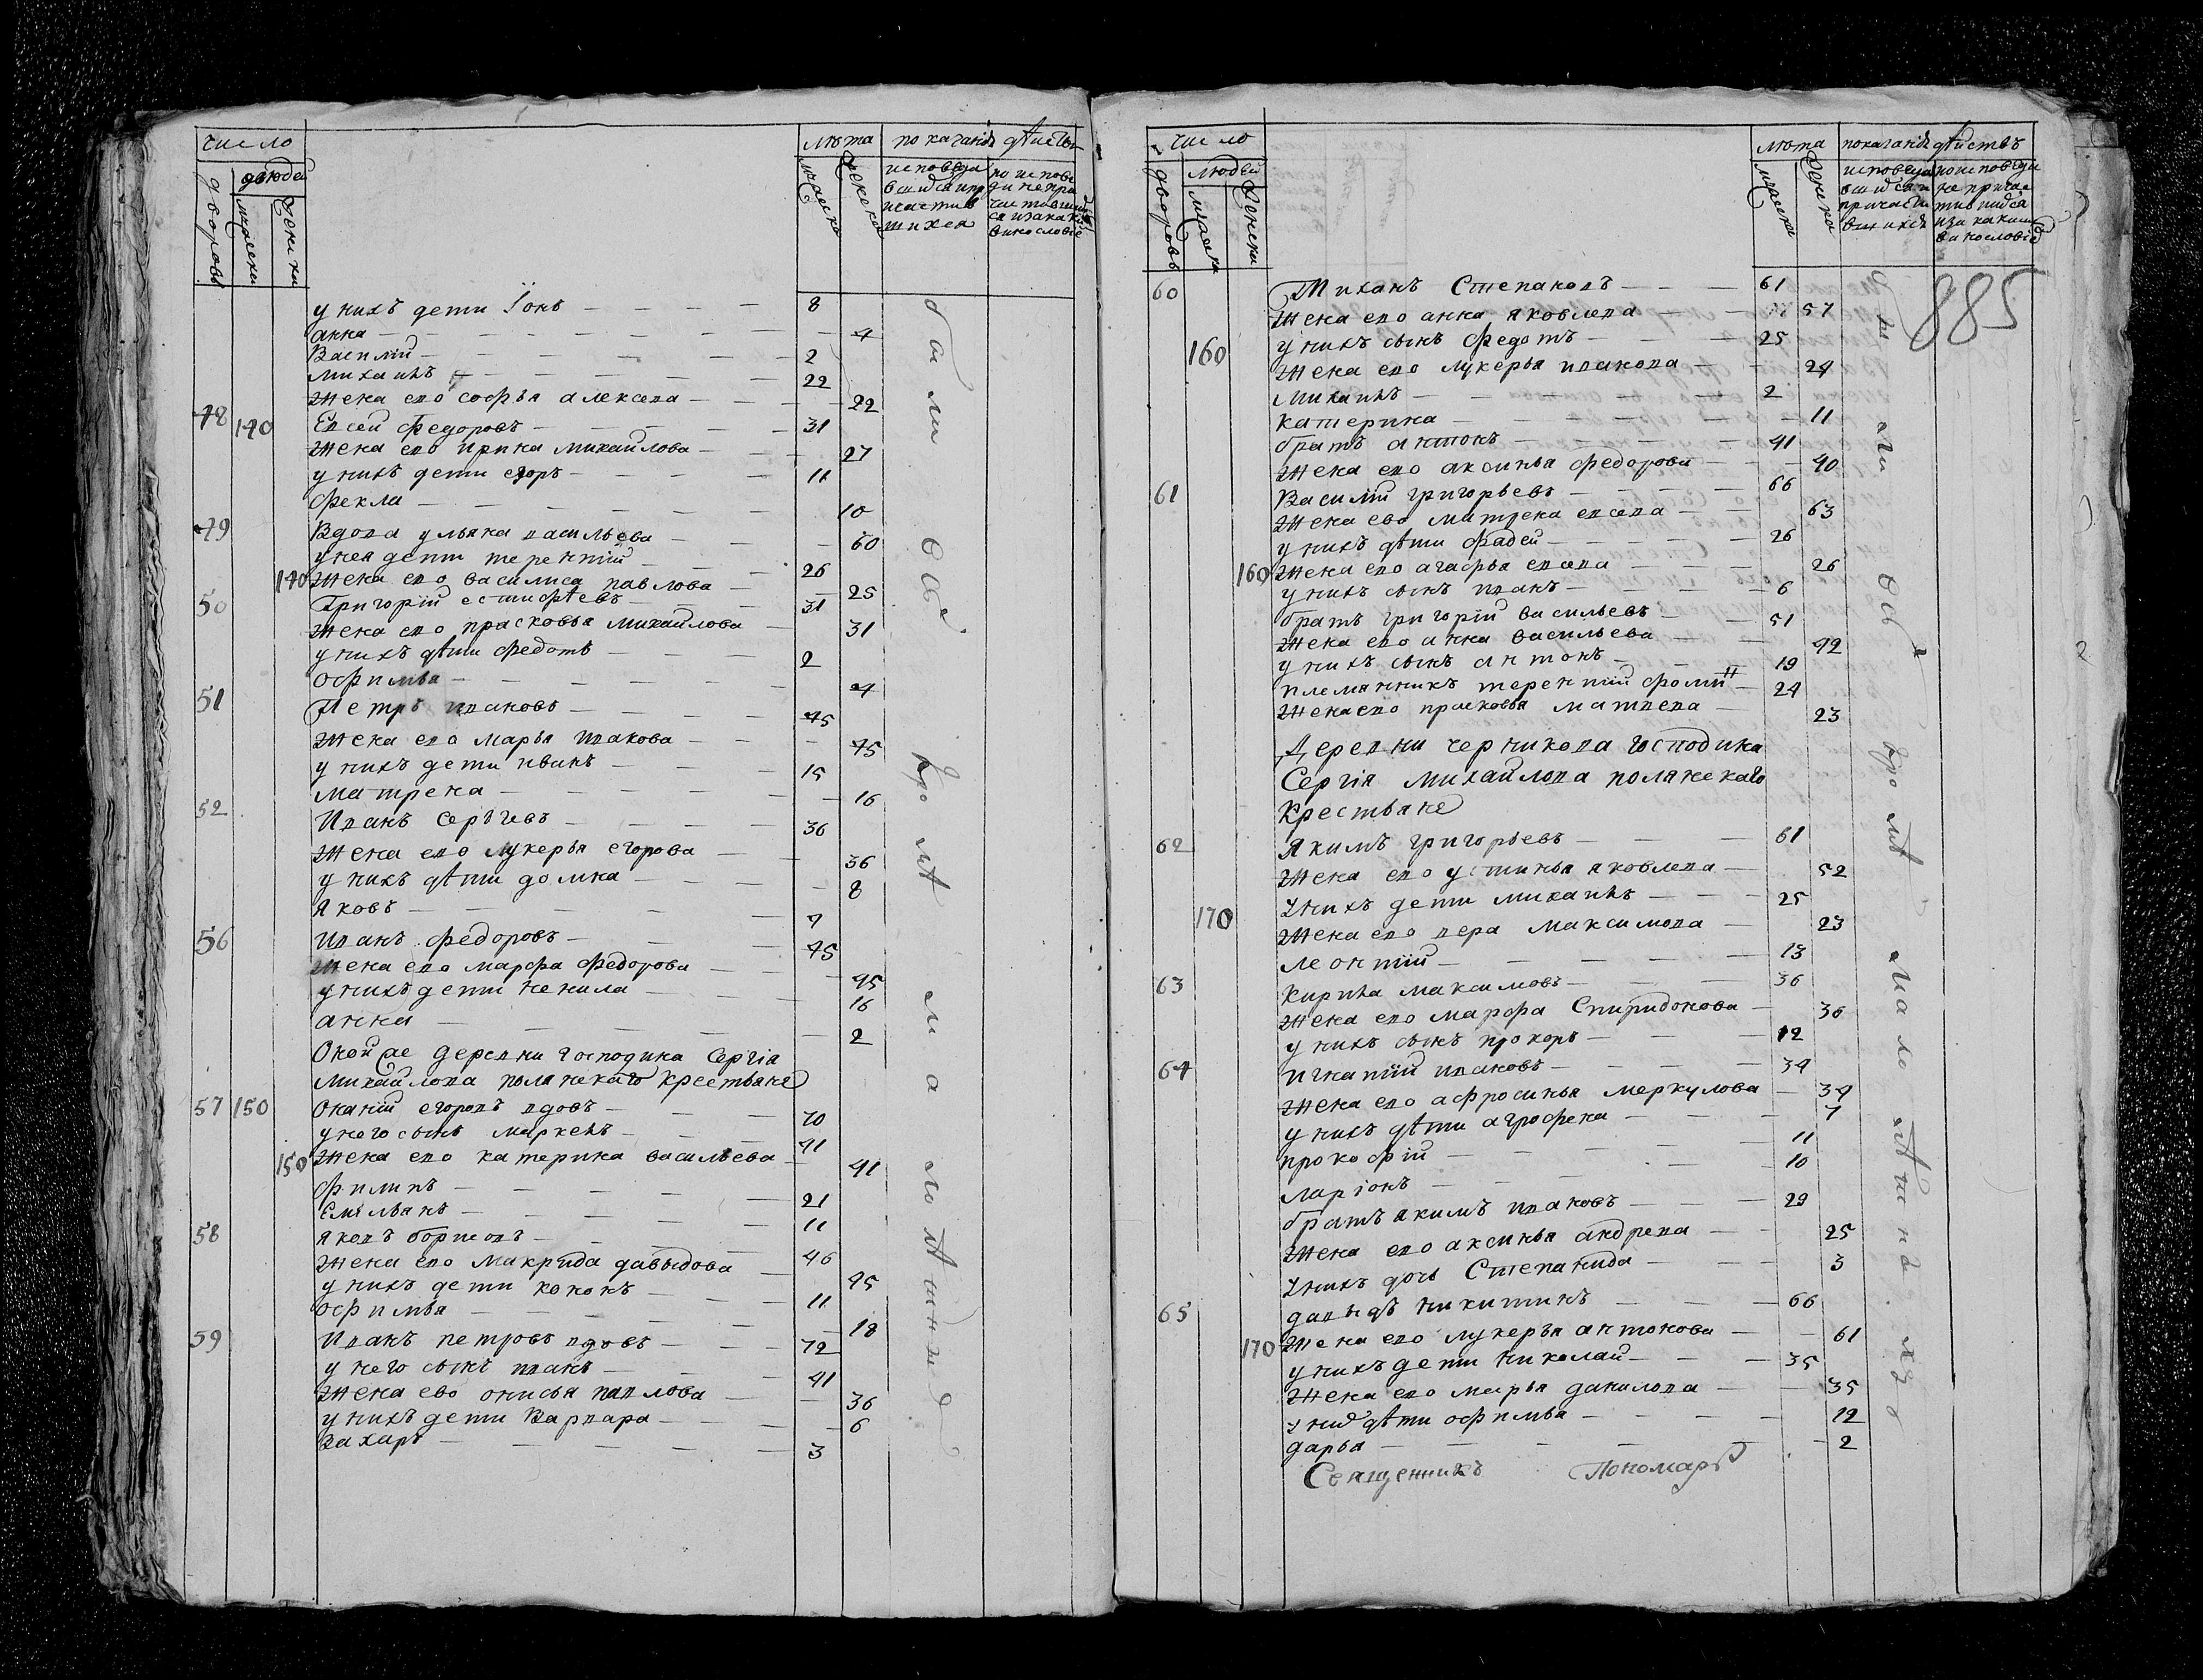 число
лѣта показанія дѣиств
людей
дворовъ
мужеска
женска
мужеска
женска
исповеда
вшихся и при
частив
шихся
по испове
ди не при
чистивших
ся и за каки
винословіе
у нихъ дети Іонъ 8
анна 4
Василій 2
михаилъ 22
жена ево софья алексева 22
48 140 Евсей федоровъ 31
жена ево ирина михайлова 27
у нихъ дети егоръ 11
фекла 10
49 Вдова ульяна васильева 60
у нея дети терентій 26
140 жена ево василиса павлова 25
50 Григорій естифѣевъ 31
жена ево прасковья михайлова 31
у нихъ дѣти федотъ 2
офимья 4
51 Петръ ивановъ 45
жена ево марья ивакова 45
у нихъ дети иванъ 15
матрена 16
52 Иванъ сергѣевъ 36
жена ево лукерья егорова 36
у нихъ дѣти домна 8
яковъ 7
56 Иванъ федоровъ 45
жена ево марфа федорова 45
у нихъ дети ненила 16
анна 2
Оной же деревни господина сергія
михайлова полянскаго крестьяне
57 150 Онаній егоровъ вдовъ 70
у него сынъ маркелъ 41
150 жена ево катерина васильева 41
филипъ 21
Емельянъ 11
58 яковъ борисовъ 46
жена ево макрида давыдова 45
у нихъ дети кононъ 11
офимья 18
59 Иванъ петровъ вдовъ 72
у него сынъ иванъ 41
жена ево онисья павлова 36
у нихъ дети Варвара 6
Захаръ 3
были
всѣ
кромѣ
малолѣтныхъ
число
лѣта показанія дѣиствъ
людей
дворовъ
мужеска
женска
мужеска
женска
исповеда
вшися и
причасти
вшихся
по исповеди
не причас
тившися
и за каким
винословіе
885
60 Михаилъ Степановъ 61
жена ево анна яковлева 57
160 у нихъ сынъ федотъ 25
жена ево лукерья иванова 24
михаилъ 2
катерина 11
братъ антонъ 41
жена ево аксинья федорова 40
61 Василій григорьевъ 66
жена ево матрена евсева 63
у нихъ дѣти фадей 26
160 жена ево агафья евсева 26
у нихъ сынъ иванъ 6
братъ григорій васильевъ 51
жена ево анна васильева 42
у нихъ сынъ антонъ 19
племянникъ терентій фомин 24
жена ево прасковья матвева 23
Деревни черникова господина
Сергія михайлова полянскаго
крестьяне
62 Якимъ григорьевъ 61
жена ево устинья яковлева 52
170 у нихъ дети михаилъ 25
жена ево вера максимова 23
леонтій 13
63 Кирила максимовъ 36
жена ево марфа Спиридонова 36
у нихъ сынъ прохоръ 12
64 Игнатій ивановъ 34
жена ево афросинья меркулова 34
у нихъ дѣти агрофена 7
прокофій 11
ларіонъ 10
братъ якимъ ивановъ 29
жена ево аксинья андрева 25
у нихъ дочь Степанида 3
65 давыдъ никитинъ 66
170 жена ево лукерья антонова 61
у нихъ дети николай 35
жена ево марья данилова 35
у них дѣти офимья 12
дарья 2
Были
всѣ
кромѣ
малолѣтныхъ
Священникъ Пономарь